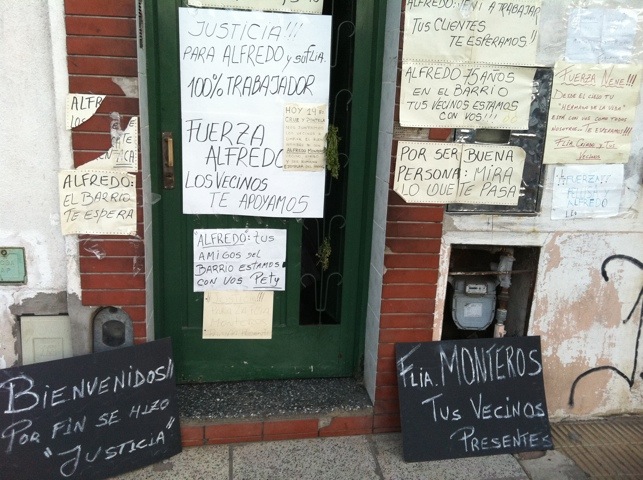 JUSTICIA!!!
PARA ALFREDO y su FLIA.
100% TRABAJADOR
FUERZA
ALFREDO
LOS VECINOS
TE APOYAMOS
HOY 19 H
ALFR
LOS
ALFREDO:
EL BARRIO
TE ESPERA
"ALFREDO": tus
AMIGOS DEL
BARRIO ESTAMOS
CON VOS Pety
ALFREDO: VENÍ A TRABAJAR
TUS CLIENTES
TE ESPERAMOS!!
ALFREDO 75 AÑOS
EN EL BARRIO
TUS VECINOS ESTAMOS
CON VOS!!!
POR SER BUENA
PERSONA: MIRA
LO QUE TE PASA
FUERZA NENE!!!
DESDE EL CIELO TU
"HERMANO DE LA VIDA"
ESTÁ CON VOS COMO TODOS
NOSOTROS. TE ESPERAMOS!!!
VECINOS
FUERZA
ALFREDO
BIENVENIDOS!!
POR FIN SE HIZO
"JUSTICIA"
FLIA. MONTEROS
TUS VECINOS
PRESENTES